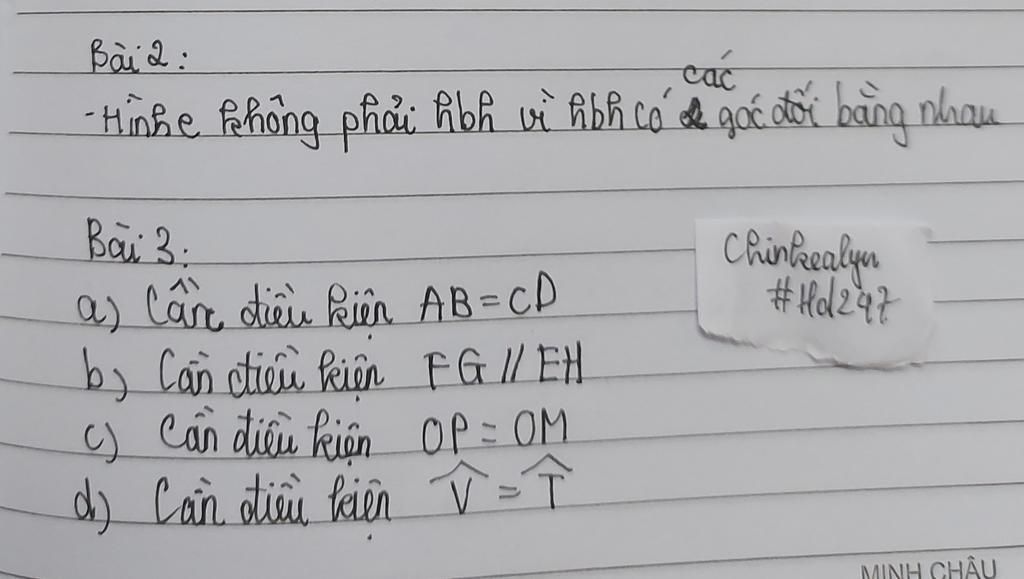 Bài 2:
- Hình e không phải hbh vì hbh có các góc đối bằng nhau
Bài 3:
a) Cần điều kiện AB = CD
b) Cần điều kiện FG // EH
c) Cần điều kiện OP = OM
d) Cần điều kiện V̂ = T̂
Chinkealyu
#Hd247
MINH CHÂU